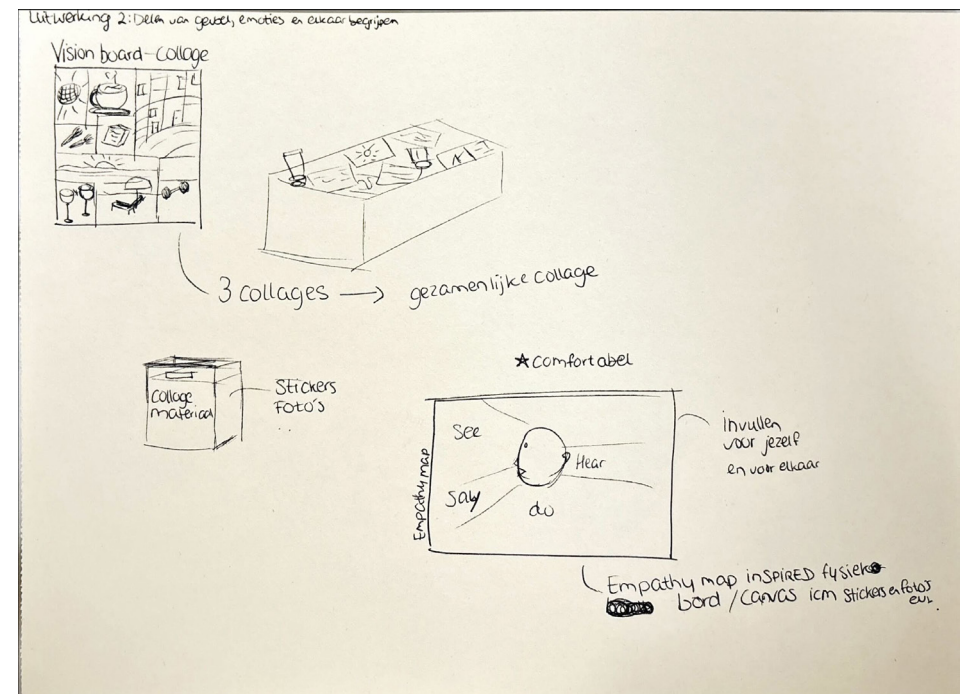 Uitwerking 2: Delen van gevoel, emoties en elkaar begrijpen
Vision board - collage
3 collages → gezamenlijke collage
Collage
materiaal
Stickers
Foto's
..
★ comfortabel
Empathy map
See
Hear
Say
do
invullen
voor jezelf
en voor elkaar
Empathy map inSPIRED fysiek
bord / canvas icm stickers en foto's